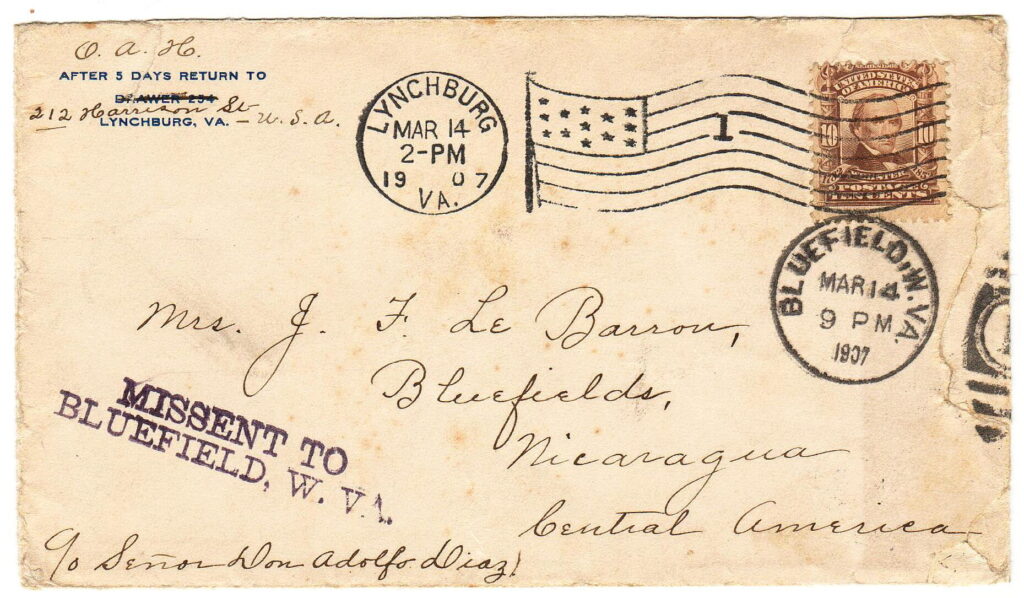 O. A. H.
AFTER 5 DAYS RETURN TO
DRAWER 254
212 Harrison St
LYNCHBURG, VA. - U. S. A.
LYNCHBURG
MAR 14
2-PM
19 07
VA.
1
UNITED STATES
OF AMERICA
10 10
WEBSTER
POSTAGE
TEN CENTS
BLUEFIELD, W. VA.
MAR 14
9 PM
1907
Mrs. J. F. Le Barron,
Bluefields,
Nicaragua
Central America
MISSENT TO
BLUEFIELD, W. VA.
c/o Señor Don Adolfo Diaz